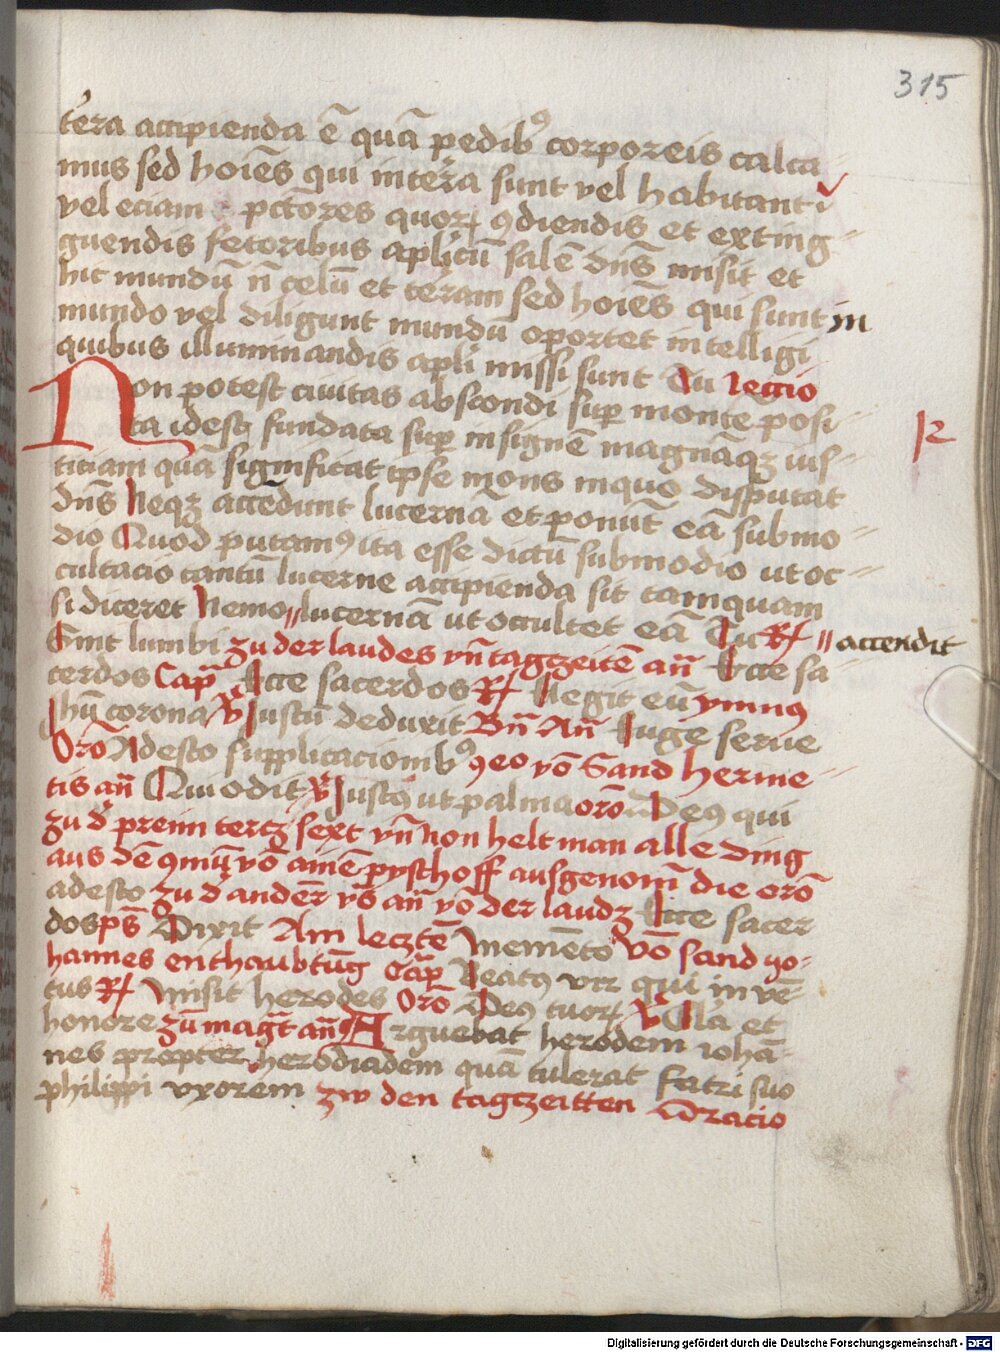 315
tera accipienda ē quā pedibꝰ corporeis calca
mus sed hoīes qui in terra sunt vel habitant
vel eciam pctores quorꝝ ꝯdiendis et exting
guendis fetoribus aplicū salē dn̄s misit et
hic mundū n̄ celū et teram sed hoīes qui sunt in
mundo vel diligunt mundū oportet intelligi
quibus illuminandis apli missi sunt Tu leccio
Non potest civitas abscondi suꝑ monte posi
ta idest fundata suꝑ insignē magnāqꝫ ius
titiam quā significat ipse mons in quo disputat
dn̄s Neqꝫ accedunt lucernā et ponūt eā sub mo
dio Quod putamꝰ ita esse dictū sub modio ut oc
cultacio tantū lucerne accipienda sit tamquam
si diceret Nemo lucernā ut occultet eā Tu R/ accendit
Sint lumbi zu der laudes vn̄ tagczeitē an̄ Ecce sa
cerdos Cap̄ Ecce sacerdos R/ Elegit eū ymnus
Ihū corona V Justū deduxit Bn̄ An̄ Euge serve
Orō Adesto supplicacionibꝰ ꝯeo vō Sand Herme
tis an̄ Qui odit V Justꝰ ut palma orō Deꝰ qui
zu d' preim tercz sext vn̄ non helt man alle ding
aus dē ꝯmū vō ainē pyschoff ausgenom̄ die orō
adesto zu d' ander vs̄ an̄ vō der laudꝫ Ecce sacer
dos ps̄ Dixit Am lecztē Memēto vō sand yo
hannes enthaubtūg Cap̄ Beatꝰ vir qui in vē
tus R/ Misit herodes Orō Deꝰ tuorꝝ V Gl̄a et
honore zū magt̄ an̄ Arguebat herodem iohā
nes propter herodiadem quā tulerat fatri suo
philippi uxorem zw den tagczeitten Oracio